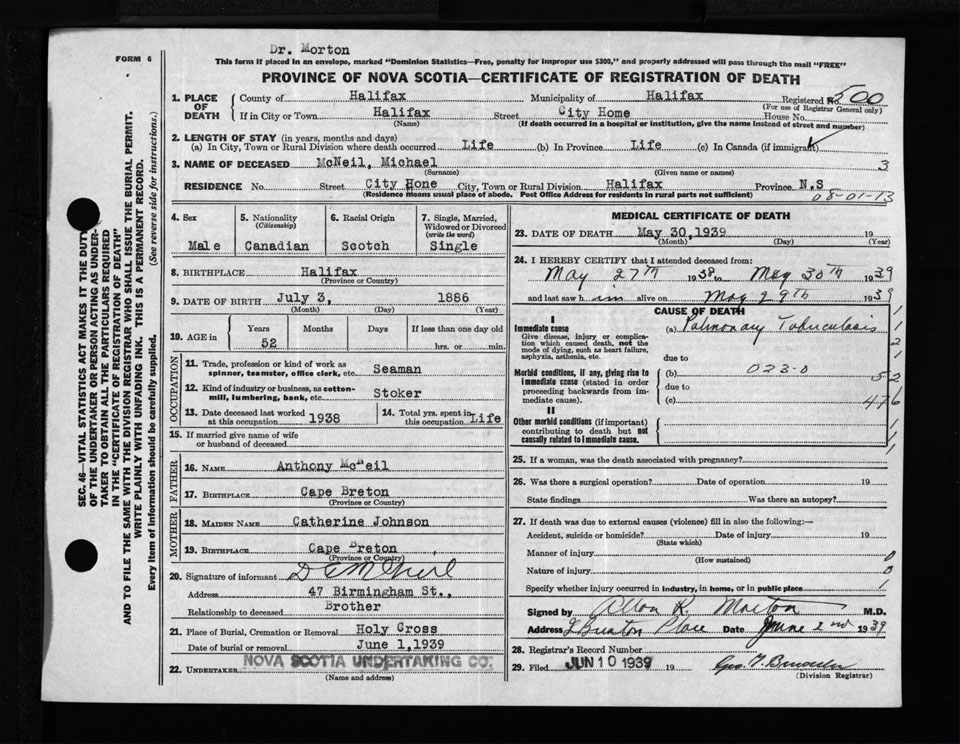 Dr. Morton
FORM 6
This form if placed in an envelope, marked "Dominion Statistics—Free, penalty for improper use $300," and properly addressed will pass through the mail "FREE"
PROVINCE OF NOVA SCOTIA—CERTIFICATE OF REGISTRATION OF DEATH
1. PLACE OF DEATH
County of Halifax Municipality of Halifax Registered No. 500
(For use of Registrar General only)
If in City or Town Halifax Street City Home House No.
(Name) (If death occurred in a hospital or institution, give the name instead of street and number)
2. LENGTH OF STAY (in years, months and days)
(a) In City, Town or Rural Division where death occurred Life (b) In Province Life (c) In Canada (if immigrant)
3. NAME OF DECEASED McNeil, Michael 3
(Surname) (Given name or names)
RESIDENCE No. Street City Hone City, Town or Rural Division Halifax Province N.S
(Residence mean usual place of abode. Post Office Address for residents in rural parts not sufficient) 08-01-13
4. Sex
Male
5. Nationality
(Citizenship)
Canadian
6. Racial Origin
Scotch
7. Single, Married, Widowed or Divorced
(write the word)
Single
8. BIRTHPLACE Halifax
(Province or Country)
9. DATE OF BIRTH July 3, 1886
(Month) (Day) (Year)
10. AGE in
Years Months Days If less than one day old
52 hrs. or min.
OCCUPATION
11. Trade, profession or kind of work as
spinner, teamster, office clerk, etc. Seaman
12. Kind of industry or business, as cotton-
mill, lumbering, bank, etc. Stoker
13. Date deceased last worked
at this occupation 1938
14. Total yrs. spent in
this occupation Life
15. If married give name of wife
or husband of deceased
FATHER
16. NAME Anthony McNeil
17. BIRTHPLACE Cape Breton
(Province or Country)
MOTHER
18. MAIDEN NAME Catherine Johnson
19. BIRTHPLACE Cape Breton
(Province or Country)
20. Signature of informant
Address 47 Birmingham St.,
Relationship to deceased Brother
21. Place of Burial, Cremation or Removal Holy Cross
Date of burial or removal June 1,1939
22. UNDERTAKER NOVA SCOTIA UNDERTAKING CO.
(Name and address)
MEDICAL CERTIFICATE OF DEATH
23. DATE OF DEATH May 30,1939 19
(Month) (Day) (Year)
24. I HEREBY CERTIFY that I attended deceased from:
May 27th 1938 to May 30th 1939
and last saw him alive on May 29th 1939
CAUSE OF DEATH
I
Immediate cause (a) Pulmonary Tuberculosis
Give disease, injury or complica-
tion which caused death, not the
mode of dying, such as heart failure,
asphyxia, asthenia, etc.
due to
Morbid conditions, if any, giving rise to (b) 023-0
immediate cause (stated in order
proceeding backwards from im-
mediate cause).
due to
(c)
II
Other morbid conditions (if important)
contributing to death but not
causally related to immediate cause.
25. If a woman, was the death associated with pregnancy?
26. Was there a surgical operation? Date of operation 19
State findings Was there an autopsy?
27. If death was due to external causes (violence) fill in also the following:—
Accident, suicide or homicide? Date of injury 19
(State which)
Manner of injury 0
(How sustained)
Nature of injury 0
Specify whether injury occurred in industry, in home, or in public place 1
Signed by Allan R. Morton M.D.
Address Place Date June 2nd 1939
28. Registrar's Record Number
29. Filed JUN 10 1939 19
(Division Registrar)
SEC. 46—VITAL STATISTICS ACT MAKES IT THE DUTY
OF THE UNDERTAKER OR PERSON ACTING AS UNDER-
TAKER TO OBTAIN ALL THE PARTICULARS REQUIRED
IN THE "CERTIFICATE OF REGISTRATION OF DEATH"
AND TO FILE THE SAME WITH THE DIVISION REGISTRAR WHO SHALL ISSUE THE BURIAL PERMIT.
WRITE PLAINLY WITH UNFADING INK. THIS IS A PERMANENT RECORD.
Every item of information should be carefully supplied. (See reverse side for instructions.)